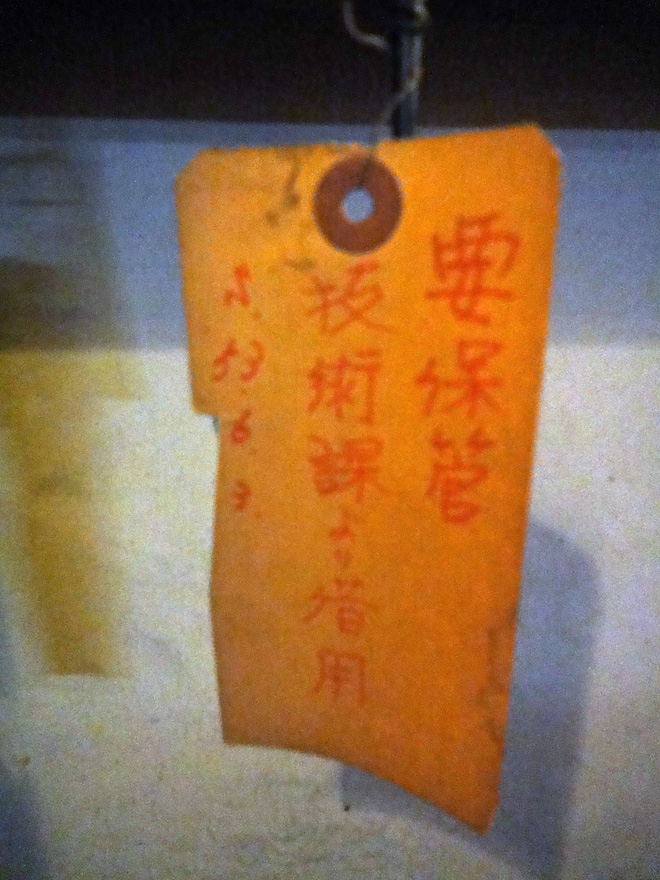 要保管
技術課より借用
S.53.6.3.